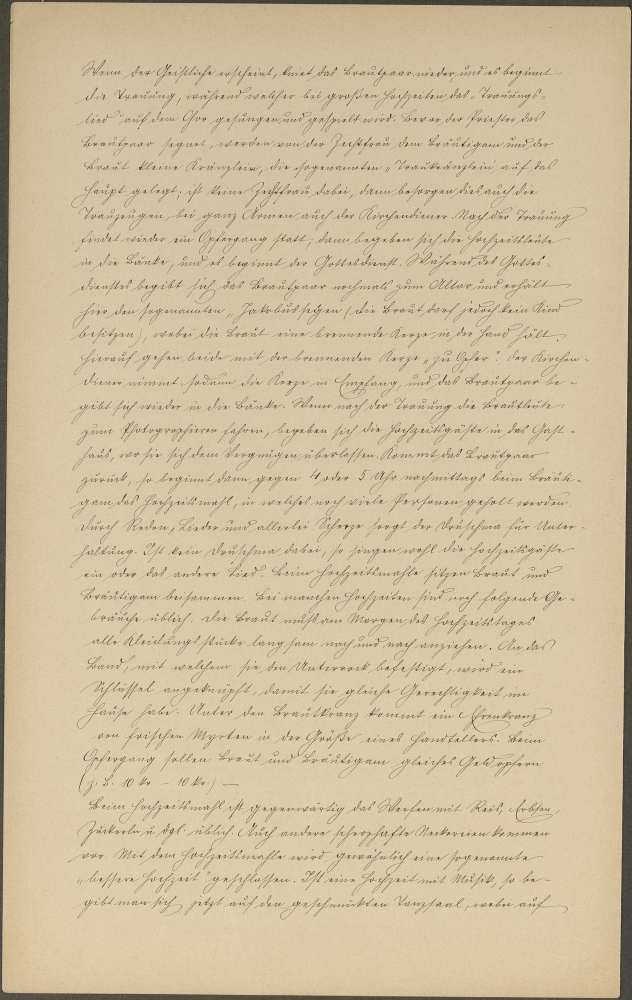 Wenn der Geistliche erscheint, kniet das Brautpaar nieder, und es beginnt
die Trauung, während welcher bei großen Hochzeiten das „Trauungs-
lied" auf dem Chor gesungen und gespielt wird. Bevor der Priester das
Brautpaar segnet, werden von der Zechtfrau dem Bräutigam und der
Braut kleine Kränzlein, die sogenannten „Traukränzlein" auf das
Haupt gelegt; ist keine Zechtfrau dabei, dann besorgen dies auch die
Trauzeugen, bei ganz Armen auch der Kirchendiener. Nach der Trauung
findet wieder ein Opfergang statt; dann begeben sich die Hochzeitsleute
in die Bänke, und es beginnt der Gottesdienst. Während des Gottes-
dienstes begibt sich das Brautpaar nochmals zum Altar und erhält
hier den sogenannten „Jakobussegen (die Braut darf jedoch kein Kind
besitzen), wobei die Braut eine brennende Kerze in der Hand hält.
Hierauf gehen beide mit der brennenden Kerze „zu Opfer". Der Kirchen-
diener nimmt sodann die Kerze in Empfang, und das Brautpaar be-
gibt sich wieder in die Bänke. Wenn nach der Trauung die Brautleute
zum Photographieren fahren, begeben sich die Hochzeitsgäste in das Gast-
haus, wo sie sich dem Vergnügen überlassen. Kommt das Brautpaar
zurück, so beginnt dann gegen 4 oder 5 Uhr nachmittags beim Bräuti-
gam das Hochzeitsmahl, zu welchem noch viele Personen geholt werden.
Durch Reden, Lieder und allerlei Scherze sorgt der Druschma für Unter-
haltung. Ist kein Druschma dabei, so singen wohl die Hochzeitsgäste
ein oder das andere Lied. Beim Hochzeitsmahle sitzen Braut und
Bräutigam beisammen. Bei manchen Hochzeiten sind noch folgende Ge-
bräuche üblich. Die Braut muß am Morgen des Hochzeitstages
alle Kleidungsstücke langsam nach und nach anziehen. An das
Band, mit welchem sie den Unterrock befestigt, wird ein
Schlüssel angeknüpft, damit sie gleiche Gerechtigkeit im
Hause habe. Unter den Brautkranz kommt ein Ehrenkranz
von frischen Myrten in der Größe eines Handtellers. Beim
Opfergang sollen Braut und Bräutigam gleiches Geld opfern
(z. B. 10 kr – 10 kr.) —
Beim Hochzeitsmahl ist gegenwärtig das Werfen mit Reis, Erbsen,
Zuckerln u. dgl. üblich. Auch andere scherzhafte Neckereien kommen
vor. Mit dem Hochzeitsmahle wird gewöhnlich eine sogenannte
„bessere Hochzeit" geschlossen. Ist eine Hochzeit mit Musik, so be-
gibt man sich jetzt auf den geschmückten Tanzsaal, wobei auf